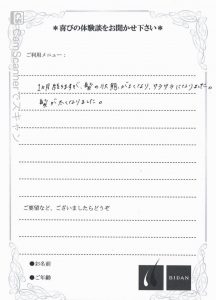 CamScanner でスキャン
＊喜びの体験談をお聞かせ下さい＊
ご利用メニュー：
1ヵ月 経ちますが、髪の状態がよくなり、サラサラになりました。
髪が太くなりました。
ご要望など、ございましたらどうぞ
●お名前
●ご年齢
BIDAN